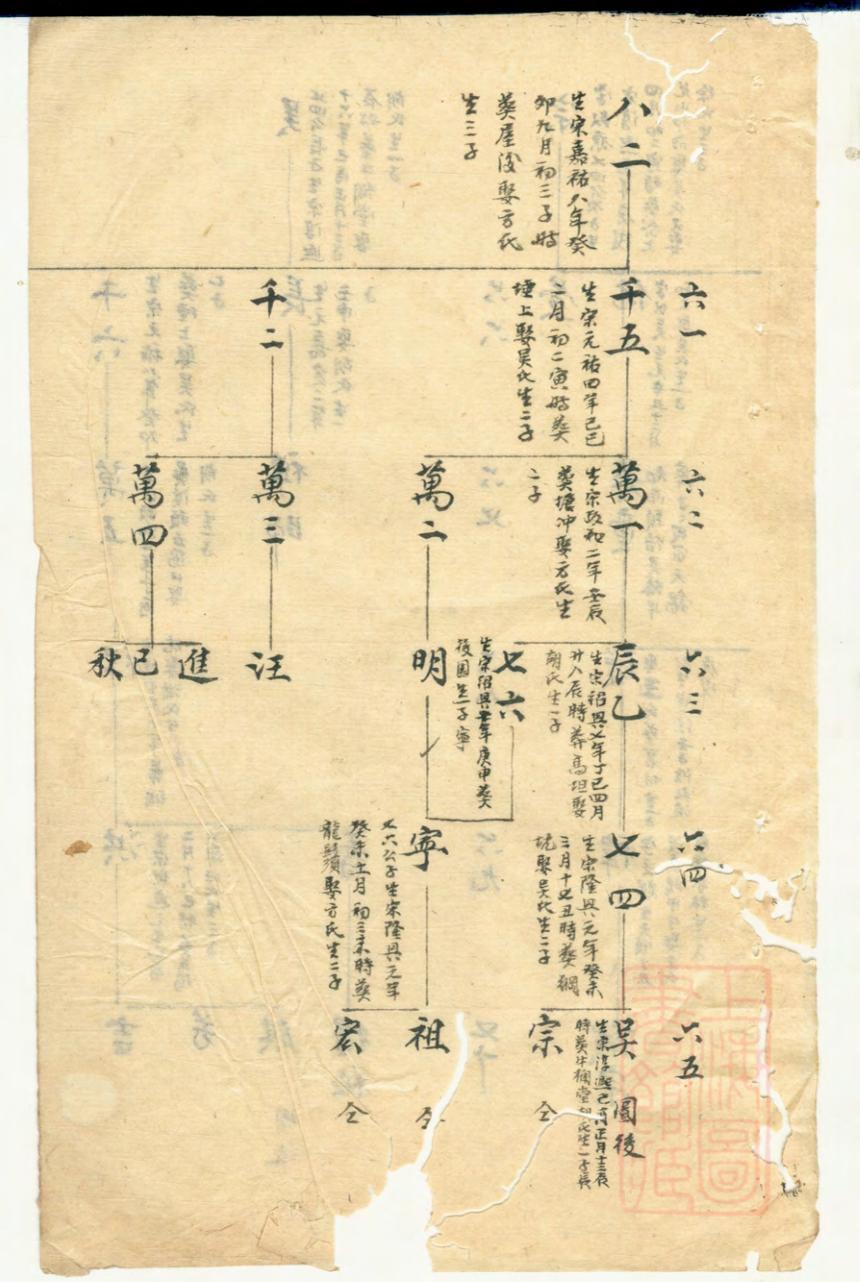 八二
生宋嘉祐八年癸
卯九月初三子時
葬屋後娶方氏
生三子
六一
千五
生宋元祐四年己巳
二月初二寅時葬
塘上娶吳氏生二子
千二
六二
萬一
生宋政和二年壬辰
葬塘冲娶方氏生
二子
萬二
萬三
萬四
六三
辰乙
生宋紹興七年丁巳四月
廿八辰時葬高坦娶
胡氏生一子
七六
生宋紹興年庚申葬
後園生一子寧
明
汪
進
已
秋
六四
七四
生宋隆興元年癸未
三月十七丑時葬
坑娶吳氏生二子
寧
七六公子生宋隆興元年
癸未十一月初三未時葬
龍鬚娶方氏生二子
六五
吳 圖後
生宋淳熙己酉正月十三辰
時葬牛欄堂胡氏生一子長
宗 仝
祖 仝
宏 仝
上海圖書館藏